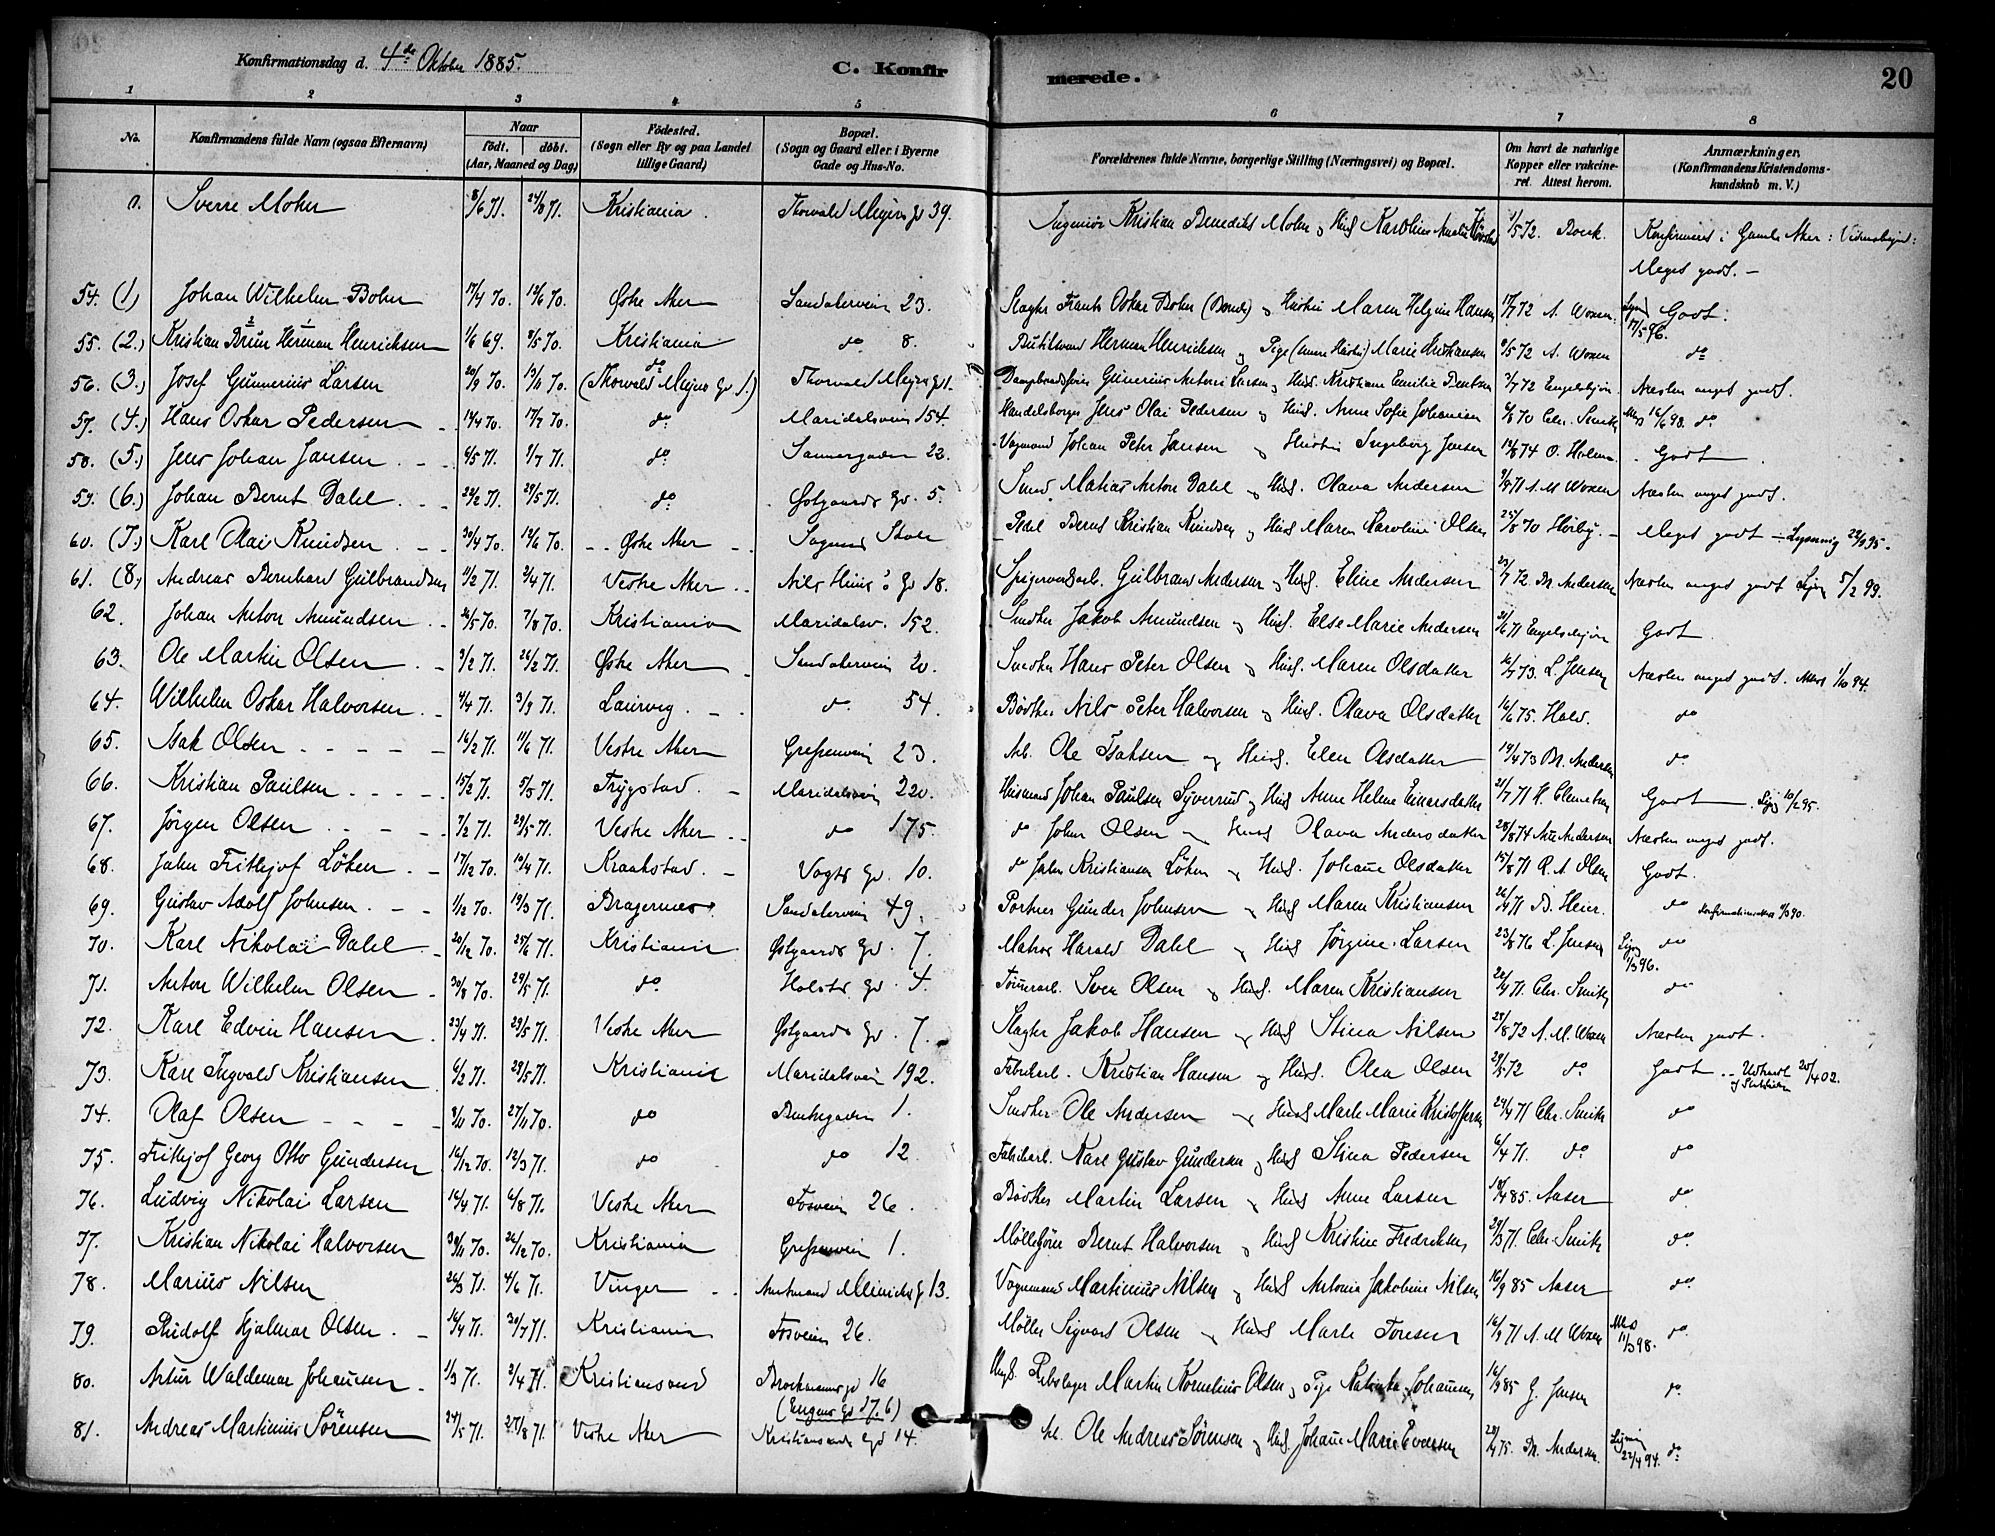 Konfirmationsdag d. 4de Oktober 1885. C. Konfirmerede. 20
1 2 3 4 5 6 7 8
No. Konfirmandens fulde Navn (ogsaa Efternavn) Naar født. døbt. (Aar, Maaned og Dag) Fødested. (Sogn eller By og paa Landet tillige Gaard) Bopæl. (Sogn og Gaard eller i Byerne Gade og Hus-No. Forældrenes fulde Navne, borgerlige Stilling (Næringsvei) og Bopæl. Om havt de naturlige Kopper eller vakcineret. Attest herom. Anmærkninger. (Konfirmandens Kristendomskundskab m. V.)
0. Sverre Mohn 8/6 71. 24/8 71. Kristiania. Thorvald Meyers gd 39. Ingeniør Kristian Benedikt Mohn 1/5 72. Boeck. Konfirmeret i Gamle Aker
Meget godt. –
54. (1) Johan Wilhelm Bohn 17/4 70. 19/6 70. Østre Aker Sandakerveien 23. Slagter Frants Oskar Bohn & Hustru Maren Helgine Hansen 17/7 72 A. Woxen. Godt.
55. (2.) Kristian Brun Herman Henriksen 1/6 69. 8/5 70. Kristiania do 8. Herman Henriksen & Pige Marie 8/5 72 A. Woxen do
56. (3.) Josef Gunnerius Larsen 20/9 70. 13/11 70. do (Thorvald Meyers Gd 1.) Thorvald Meyers gd 1. Gunerius Antoni Larsen & Hust. Kristiane Emilie Bentsen 3/7 72 Engelskjøn Næsten meget godt.
57. (4.) Hans Oskar Pedersen 14/4 70. 17/7 70. do. Maridalsveien 154. Handelsborger Jens Olai Pedersen & Hust. Anne Sofie Johansen 6/8 70 Chr. Smith do
58. (5.) Jens Johan Jansen 6/5 71. 9/7 71. do. Sannergaden 22. Vognmand Johan Peter Jansen & Hustru Ingeborg Jensen 19/8 74 O. Holm. Godt
59. (6.) Johan Bernt Dahl 24/2 71. 29/5 71. do. Østgaards Gd. 5. Smed Matias Anton Dahl & Hust. Olava Andersen 9/9 71 A. M. Woxen Næsten meget godt.
60. (7.) Karl Olai Knudsen 30/4 70. 19/6 70. Østre Aker Sagene Skole Pedel Bernt Kristian Knudsen & Hust Maren Karoline Olsen 25/8 70 Hørbye. Meget godt – Lysning 22/9 95.
61. (8.) Andreas Bernhard Gulbrandsen 11/2 71. 2/4 71. Vestre Aker Nils Huus's Gd 18. Spigerverksarb. Gulbrand Andersen & Hust. Eline Andersen 23/7 72. Andersen Næsten meget godt 5/2 99.
62. Johan Anton Amundsen 26/5 70. 7/8 70. Kristiania Maridalsv. 152. Snedker Jakob Amundsen & Hust. Else Marie Andersen 21/6 71 Engelskjøn Godt.
63. Ole Martin Olsen 3/2 71. 26/2 71. Østre Aker Sandakerveien 20. Snedker Hans Peter Olsen & Hust. Maren Olsdatter 16/7 73. L. Jensen Næsten meget godt. Attest 1/10 94.
64. Wilhelm Oskar Halvorsen 4/4 71. 3/9 71. Laurvig do. 54. Bødker Nils Peter Halvorsen & Hust. Olava Olsdatter 16/6 75. Hald. do
65. Isak Olsen 16/2 71. 11/6 71. Vestre Aker Grefsenveien 23. Arb. Ole Isaksen & Hust. Elen Olsdatter 19/4 73 Andersen do.
66. Kristian Paulsen 15/2 71. 5/3 71. Trygstad Maridalsveien 220. Husmand Johan Paulsen Syverrud & Hust Anne Helene Einarsdatter 21/7 71 Godt 10/2 95.
67. Jørgen Olsen 7/2 71. 29/5 71. Vestre Aker do 175. do Johan Olsen & Hust Olava Andersdatter 28/8 74 Andersen Næsten meget godt.
68. John Frithjof Løken 17/12 70. 10/4 71. Kraakstad Vogts Gd. 10. do John Kristiansen Løken & Hust. Johanne Olsdatter 15/8 71 R. A. Olsen Godt.
69. Gustav Adolf Johnsen 1/12 70. 19/3 71. Bragernes. Sandakerveien 49. Portner Gunder Johnsen & Hust Maren Kristiansen 26/4 71 B. Heier. do
70. Karl Nikolai Dahl 20/12 70. 25/6 71. Kristiania Østgaards Gd. 7. Matros Harald Dahl & Hust Jørgine Larsen 23/8 76 L. Jensen 1/3 96. do
71. Anton Wilhelm Olsen 30/8 70. 29/5 71. do. Holsts Gd. 4. Tømrerarb. Sven Olsen & Hust. Maren Kristiansen 22/4 71. Chr. Smith do
72. Karl Edvin Hansen 23/4 71. 29/5 71. Vestre Aker Østgaards Gd. 7. Slagter Jakob Hansen & Hust Stina Nilsen 25/8 72 A. M. Woxen Næsten godt.
73. Karl Ingvald Kristiansen 6/2 71. 29/5 71. Kristiania Maridalsveien 192. Fabrikarb. Kristian Hansen & Hust. Olea Olsen 29/5 72 do. Godt. 25/4 02.
74. Olaf Olsen 3/11 70. 27/11 70. do Bentsegaden 1. Snedker Ole Andersen & Hust Marte Marie Kristoffersen 24/4 71 Chr. Smith do
75. Frithjof Georg Otto Gundersen 16/12 70. 12/3 71. do do 12. Fabrikarb. Karl Gustav Gundersen & Hust Stina Pedersen 6/4 71. do. do
76. Ludvig Nikolai Larsen 16/4 71. 6/8 71. Vestre Aker Fosveien 26. Bødker Martin Larsen & Hust Anne Larsen 18/4 85. Aaser do.
77. Kristian Nikolai Halvorsen 30/11 70. 26/12 70. Kristiania Grefsenveien 1. Bernt Halvorsen & Hust Kristine Fredriksen 29/3 71 Chr. Smith do.
78. Marius Nilsen 26/3 71. 4/6 71. Vinger Amtmand Meinichs g 13. Vognmand Martinius Nilsen & Hust Antonie Jakobine Nilsen 10/9 85 Aaser do.
79. Rudolf Hjalmar Olsen 16/4 71. 30/7 71. Kristiania Fosveien 26. Møller Sigvart Olsen & Hust Marte Toresen 16/9 71 A. M. Woxen 11/3 98. do.
80. Artur Waldemar Johansen 1/3 71. 2/4 71. Kristiansand Brochmanns gd 16 Martin Kornelius Olsen & Pige Johansen 16/9 85 G. Jensen do.
(Eugens Gd 17. 6)
81. Andreas Martinius Sørensen 24/5 71. 27/8 71. Vestre Aker Kristiansands Gd 14. Arb. Ole Andreas Sørensen & Hust. Johanne Marie Evensen 20/4 75. Andersen. Lysning 22/4 94. do.